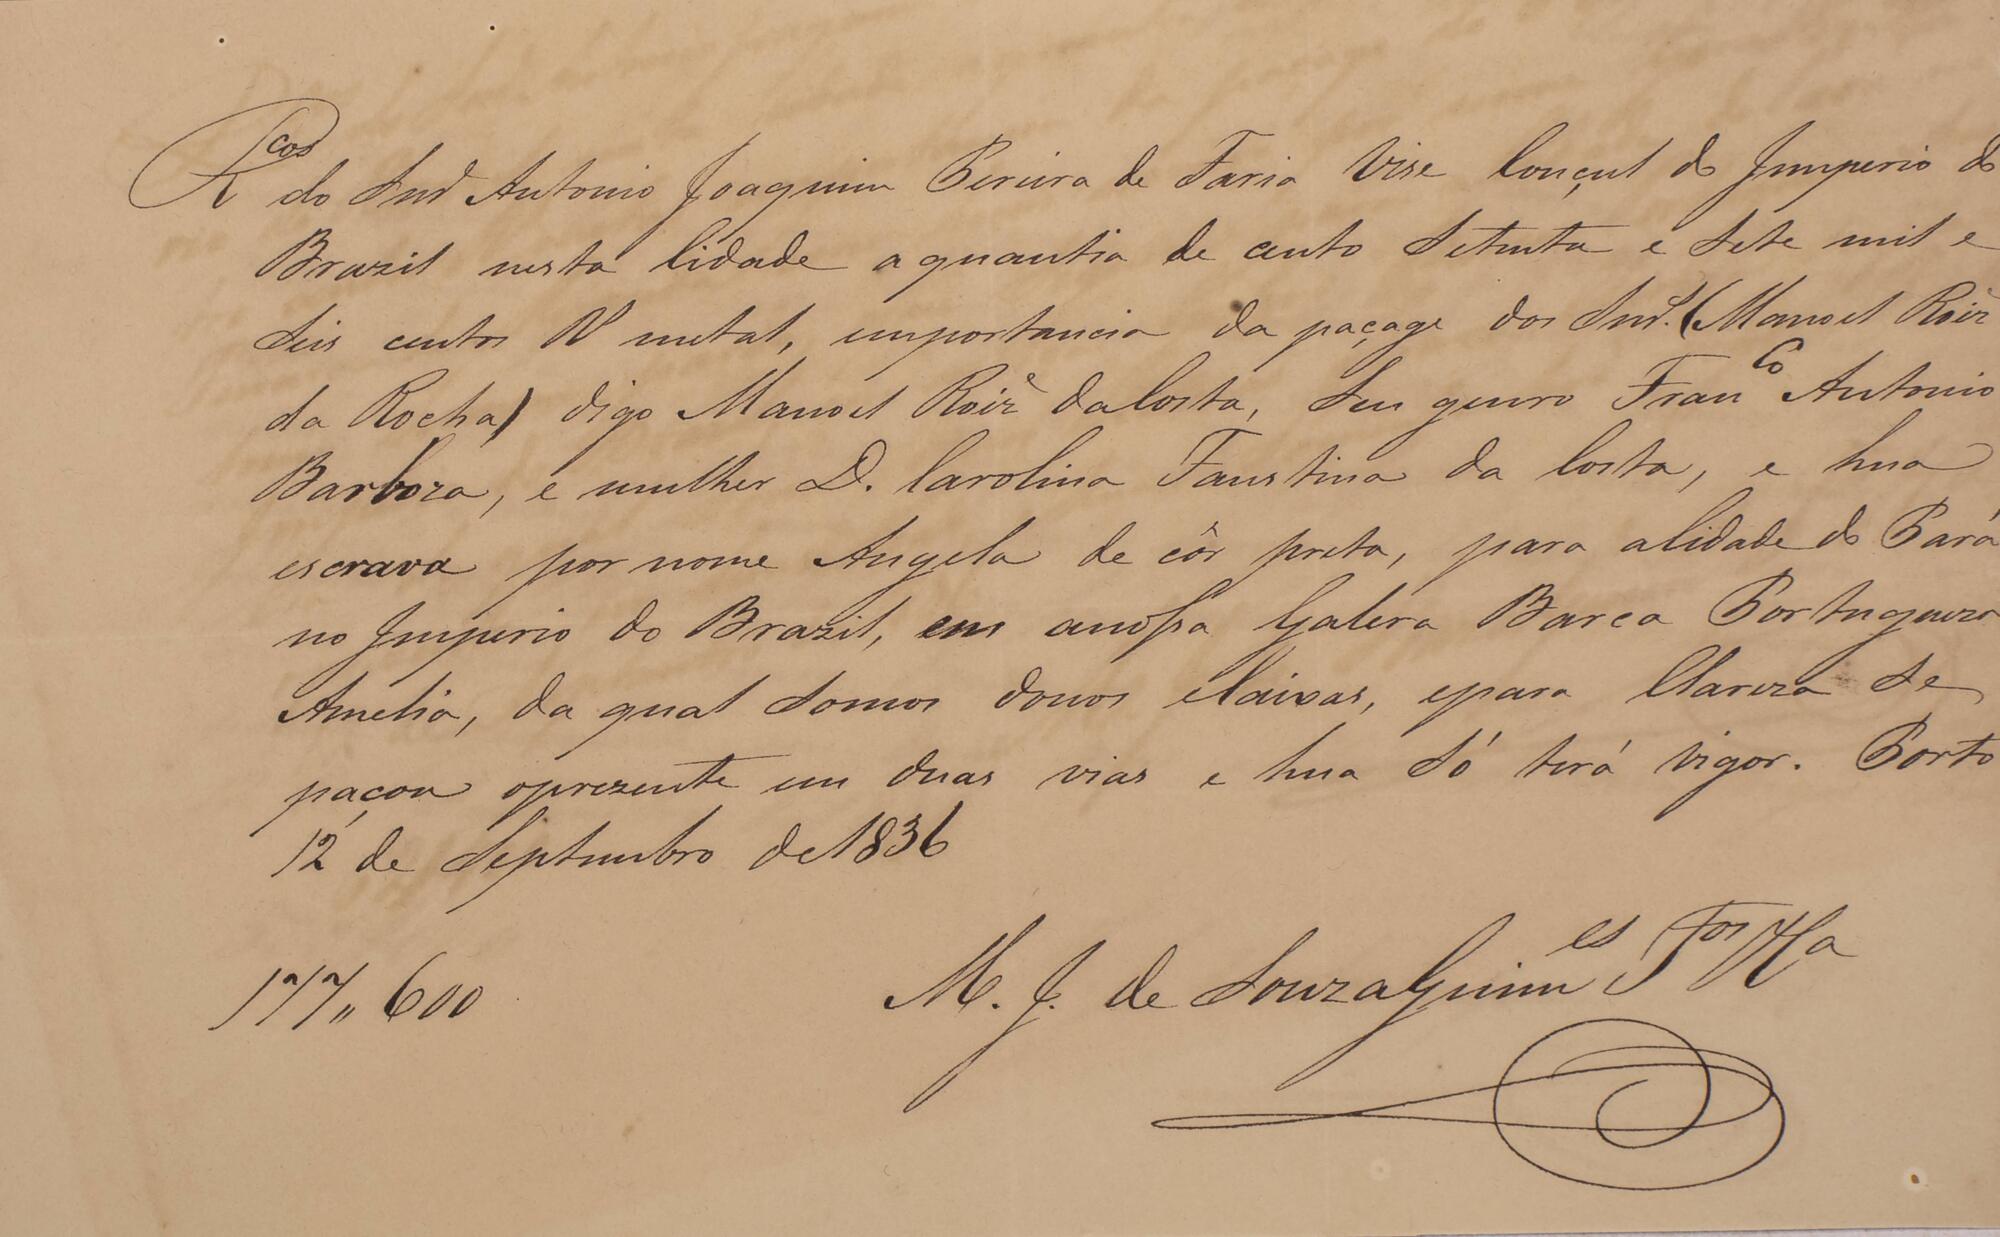 Rcos do Snr Antonio Joaquim Pereira de Faria Vise Conçul do Imperio do
Brazil nesta Cidade a quantia de cento Setenta e Sete mil e
Seis centos Rs metal, importancia da paçage dos Snrs. (Manoel Roiz
da Rocha) digo Manoel Roiz da Costa, Seu genro Franco Antonio
Barboza, e mulher D. Carolina Faustina da Costa, e hua
escrava por nome Angela de côr preta, para a Cidade do Pará
no Imperio do Brazil, em a nossa Galera Barca Portugueza
Amelia, da qual Somos donos e Caixas, e para Clareza Se
paçou o prezente em duas vias e hua Só terá vigor. Porto
12 de Septembro de 1836
177,,600 M. J. de Souza Guimes